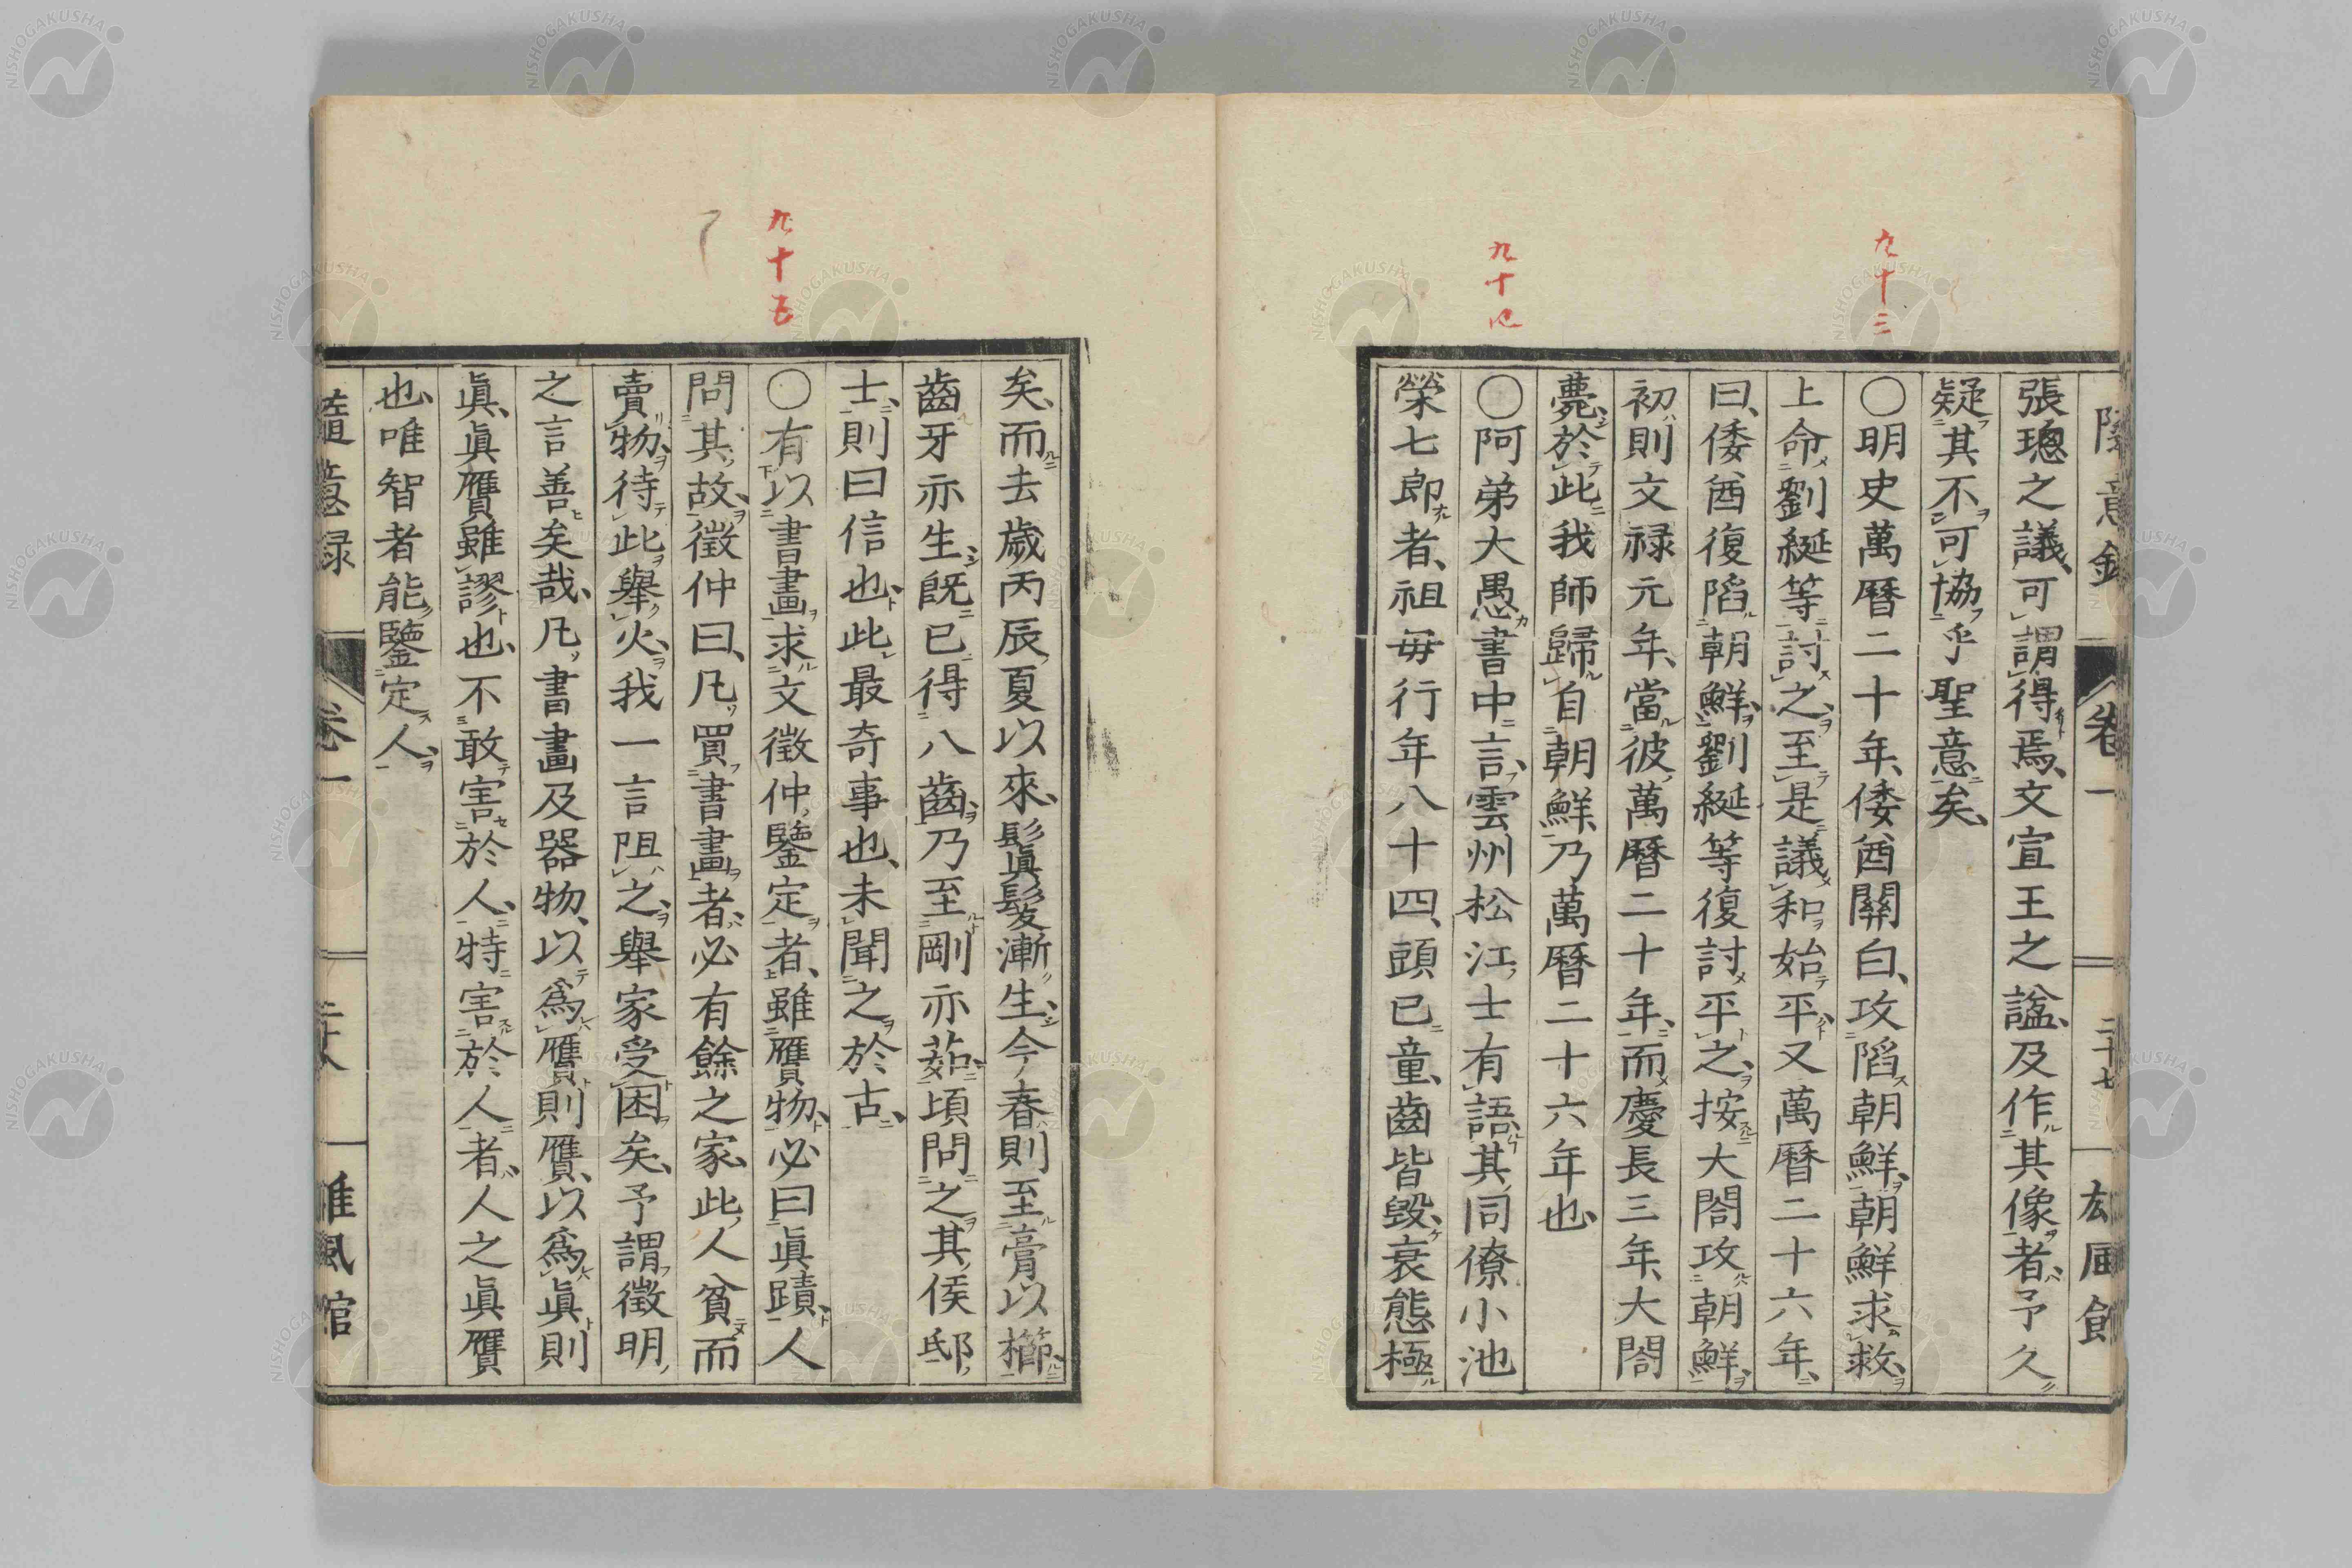 九十三
九十四
卷一
二十七
張璁之議、可謂得焉、文宣王之諡、及作其像者、予久
疑其不可協乎聖意矣、
〇明史萬曆二十年、倭酋關白、攻陷朝鮮、朝鮮求救、
上命劉綎等討之、至是議和始平、又萬曆二十六年、
曰、倭酋復陷朝鮮、劉綎等復討平之、按大閤攻朝鮮、
初則文禄元年、當彼萬曆二十年、而慶長三年、大閤
薨於此、我師歸自朝鮮、乃萬曆二十六年也、
〇阿弟大愚書中言、雲州松江士有語其同僚小池
榮七郎者、祖毋行年八十四、頭已童、齒皆毀、衰態極
九十五
矣、而去歲丙辰夏以來、鬒髮漸生、今春則至膏以櫛、
齒牙亦生、既已得八齒、乃至剛亦茹、頃問之其侯邸
士、則曰信也、此最奇事也、未聞之於古、
〇有以書畫求文徵仲鑒定者、雖贋物、必曰眞蹟、人
問其故、徵仲曰、凡買書畫者、必有餘之家、此人貧而
賣物、待此舉火、我一言阻之、舉家受困矣、予謂徵明
之言善矣哉、凡書畫及器物、以爲贋則贋、以爲眞則
眞、眞贋雖謬也、不敢害於人、特害於人者、人之眞贋
也、唯智者能鑒定人、
卷一
NISHOGAKUSHA